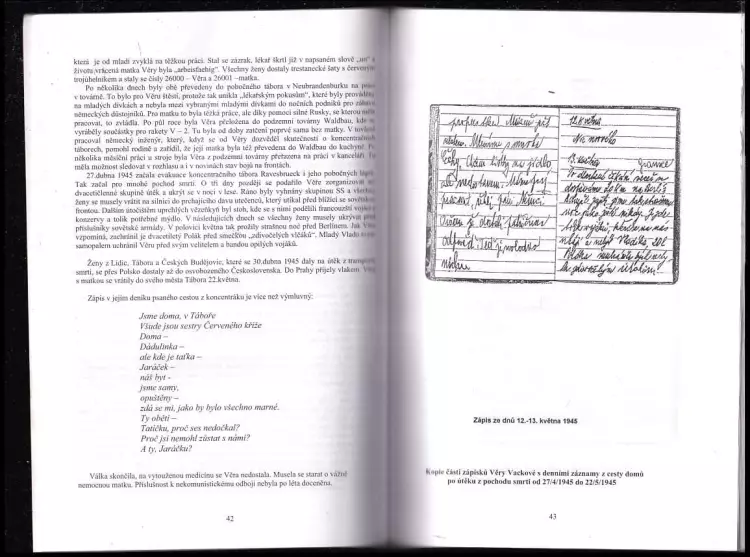 která je od mladi zvyklá na těžkou práci. Stal se zázrak, lékař škrtl již v napsaném slově „un“ a
životu vrácená matka Věry byla „arbeitsfaehig“. Všechny ženy dostaly trestanecké šaty s červeným
trojúhelníkem a staly se čísly 26000 – Věra a 26001 –matka.
Po několika dnech byly obě převedeny do pobočného tábora v Neubrandenburku na práci
v továrně. To bylo pro Věru štěstí, protože tak unikla „lékařským pokusům“, které byly prováděny
na mladých dívkách a nebyla mezi vybranými mladými dívkami do nočních podniků pro zábavu
německých důstojníků. Pro matku to byla těžká práce, ale díky pomoci silné Rusky, se kterou měla
pracovat, to zvládla. Po půl roce byla Věra přeložena do podzemní továrny Waldbau, kde se
vyráběly součástky pro rakety V – 2. Tu byla od doby zatčení poprvé sama bez matky. V továrně
pracoval německý inženýr, který, když se od Věry dozvěděl skutečnosti o koncentračních
táborech, pomohl rodině a zařídil, že její matka byla též převedena do Waldbau do kuchyně. Po
několika měsíční práci u stroje byla Věra z podzemní továrny přeřazena na práci v kanceláři. Tu
měla možnost sledovat v rozhlasu a i v novinách stav bojů na frontách.
27.dubna 1945 začala evakuace koncentračního tábora Ravesbrueck i jeho pobočných táborů.
Tak začal pro mnohé pochod smrti. O tři dny později se podařilo Věře zorganizovat
dvacetičlenné skupině útěk a ukrýt se v noci v lese. Ráno byly vyhnány skupinou SS a všechny
ženy se musely vrátit na silnici do prchajícího davu utečenců, který utíkal před blížící se sovětskou
frontou. Dalším útočištěm uprchlých vězeňkyň byl stoh, kde se s nimi podělili francouzští vojáci
konzervy a tolik potřebné mýdlo. V následujících dnech se všechny ženy musely ukrývat před
příslušníky sovětské armády. V polovici května tak prožily strašnou noc před Berlínem. Jak Věra
vzpomíná, zachránil je dvacetiletý Polák před smečkou „zdivočelých vlčáků“. Mladý Vlado
samopalem uchránil Věru před svým velitelem a bandou opilých vojáků.
Ženy z Lidic, Tábora a Českých Budějovic, které se 30.dubna 1945 daly na útěk z transportu
smrti, se přes Polsko dostaly až do osvobozeného Československa. Do Prahy přijely vlakem. Věra
s matkou se vrátily do svého města Tábora 22.května.
Zápis v jejím deníku psaného cestou z koncentráku je více než výmluvný:
Jsme doma, v Táboře
Všude jsou sestry Červeného kříže
Doma –
Dádulinka –
ale kde je taťka –
Jaráček –
náš byt -
jsme samy,
opuštěny –
zdá se mi, jako by bylo všechno marné.
Ty oběti –
Tatíčku, proč ses nedočkal?
Proč jsi nemohl zůstat s námi?
A ty, Jaráčku?
Válka skončila, na vytouženou medicínu se Věra nedostala. Musela se starat o vážně
nemocnou matku. Příslušnost k nekomunistickému odboji nebyla po léta doceněna.
42
12. května
Nic nového
13. května
Zápis ze dnů 12.-13. května 1945
Kopie části zápisků Věry Vackové s denními záznamy z cesty domů
po útěku z pochodu smrti od 27/4/1945 do 22/5/1945
43